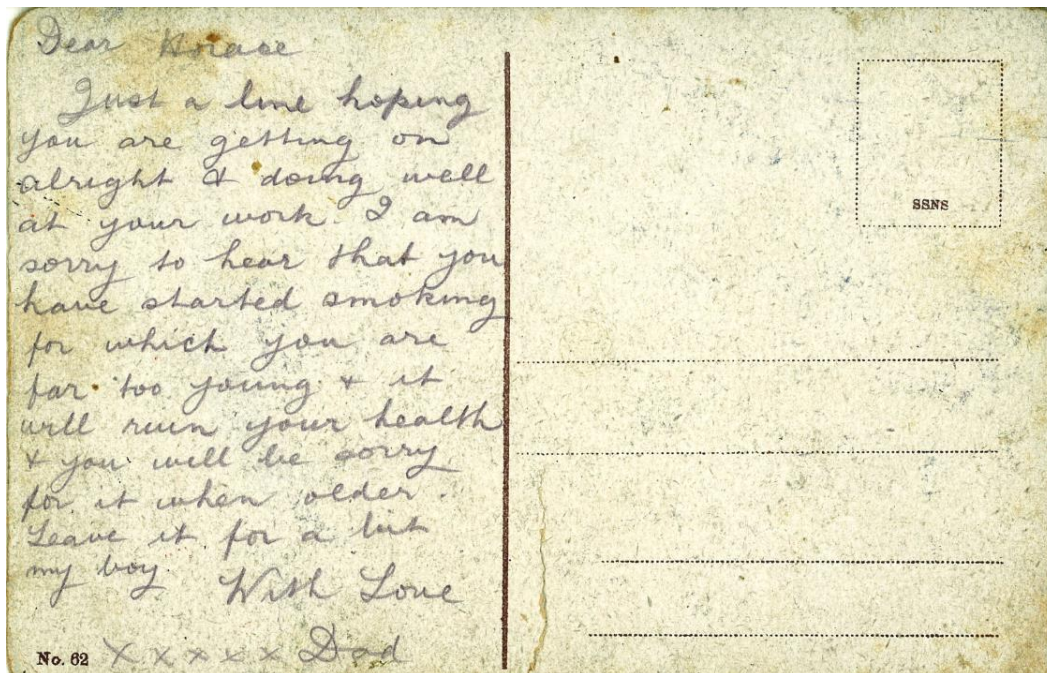 Dear Horace
Just a line hoping
you are getting on
alright & doing well
at your work. I am
sorry to hear that you
have started smoking
for which you are
far too young & it
will ruin your health
& you will be sorry
for it when older.
Leave it for a bit
my boy.
With Love
x x x x x Dad
No. 62
SSNS